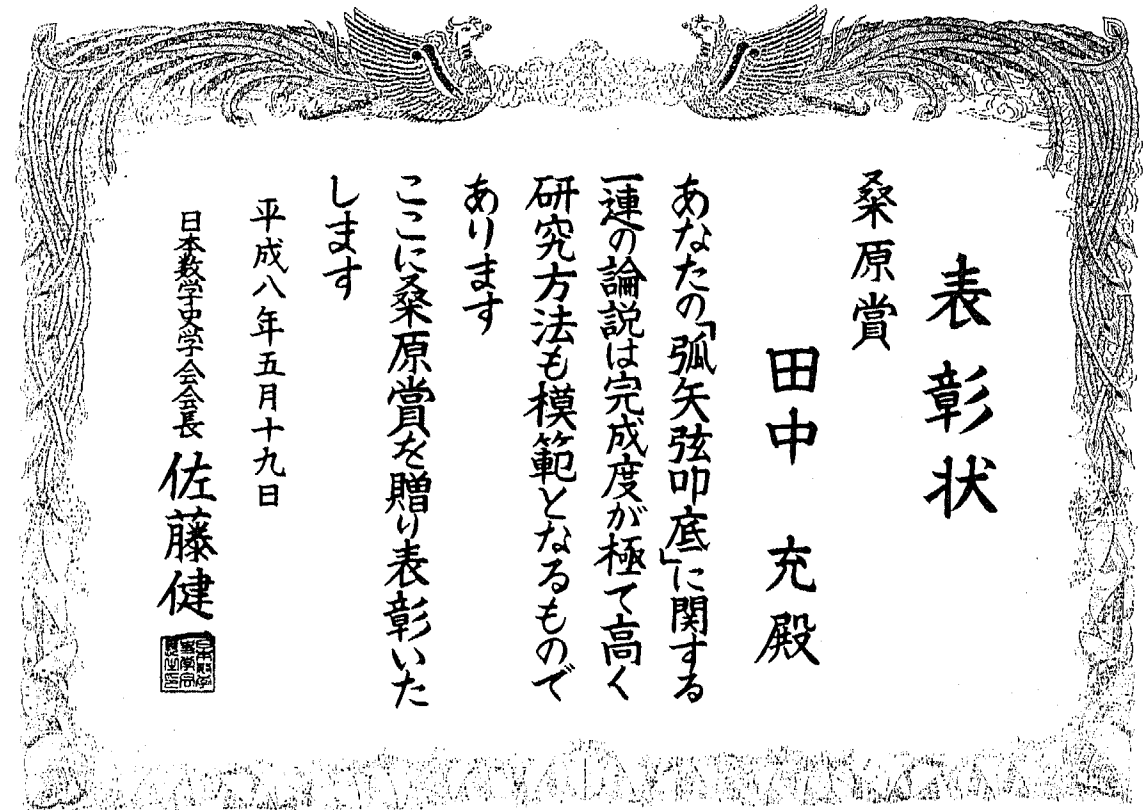 表彰状
桑原賞
田中 充殿
あなたの「弧矢弦叩底」に関する
一連の論説は完成度が極て高く
研究方法も模範となるもので
あります
ここに桑原賞を贈り表彰いた
します
平成八年五月十九日
日本数学史学会会長 佐藤健一